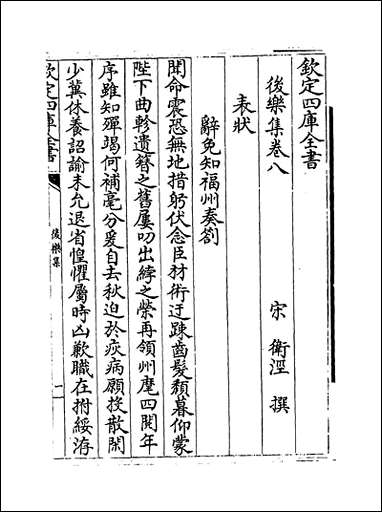 欽定四庫全書
後樂集卷八
宋 衛涇 撰
表狀
辭免知福州奏劄
聞命震恐無地措躬伏念臣材術迂疎齒髮頹暮仰蒙
陛下曲軫遺簪之舊屢叨出綍之榮再領州麾四閱年
序雖知殫竭何補毫分爰自去秋迫於疾病願投散閑
少冀休養詔諭未允退省惶懼屬時凶歉職在拊綏洊
欽定四庫全書
後樂集
一